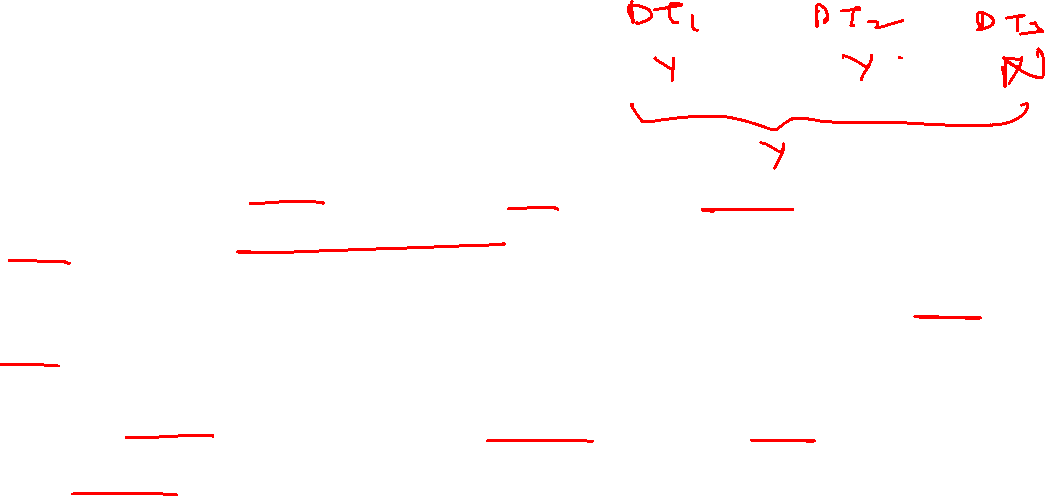 DT1 DT2 DT3
Y Y N
Y